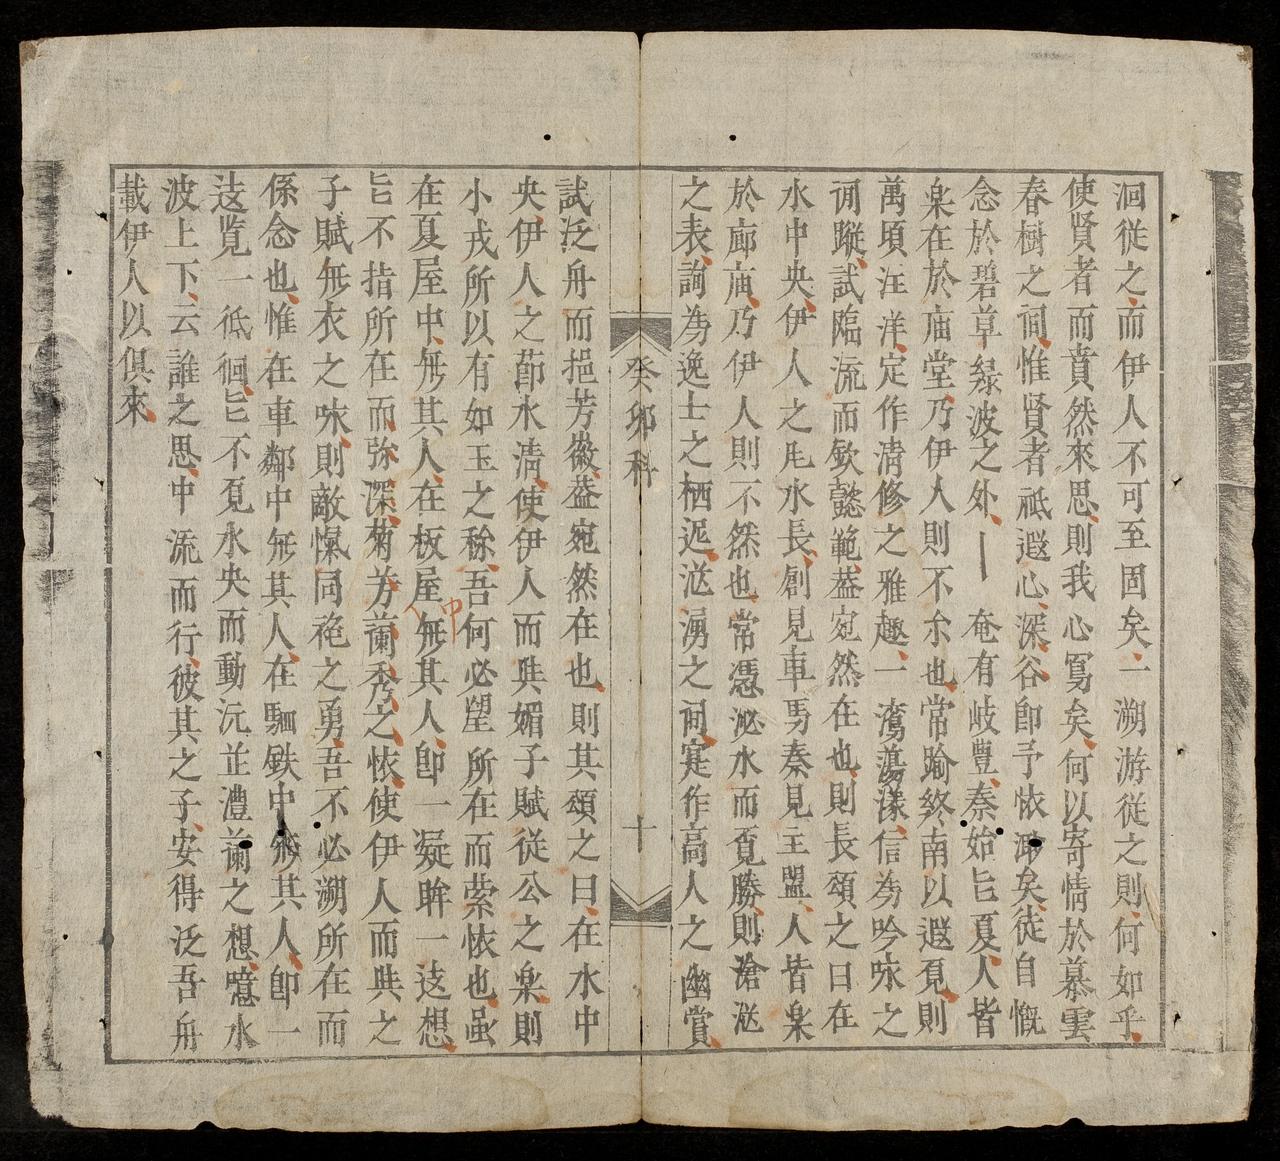 洄從之而伊人不可至固矣一溯游從之則何如乎
使賢者而賁然來思則我心冩矣何以寄情於慕雲
春樹之詞惟賢者祗遐心深谷即予依溯矣徒自慨
念於碧草緑波之外 奄有岐豐秦始㫖夏人皆
楽在於庙堂乃伊人則不尒也常踰終南以遐覓則
萬頃汪洋定作清修之雅趣一灣蕩漾信為吟咏之
詷蹤試臨流而欽懿範葢宛然在也則長頌之曰在
水中央伊人之凥水長創見車馬秦見主盟人皆楽
於廊庙乃伊人則不然也常憑泌水而覓勝則滄㳂
之表詢為逸士之栖迡㳂湧之詞寔作高人之幽賞
癸夘科
十
試泛舟而挹芳徽葢宛然在也則其頌之曰在水中
央伊人之莭水清使伊人而㒷媚子賦從公之楽則
小戎所以有如玉之稱吾何必望所在而縈依也虽
在夏屋中無其人在板屋中無其人即一凝眸一迲想
㫖不指所在而弥深菊芳蘭秀之依使伊人而㒷之
子賦無衣之咏則敵愾同袍之勇吾不必溯所在而
係念也惟在車鄰中無其人在駟鉄中無其人即一
迲覧一徘徊㫖不覓水央而動沅並澧蘭之想噫水
波上下云誰之思中流而行彼其之子安得泛吾舟
載伊人以俱來